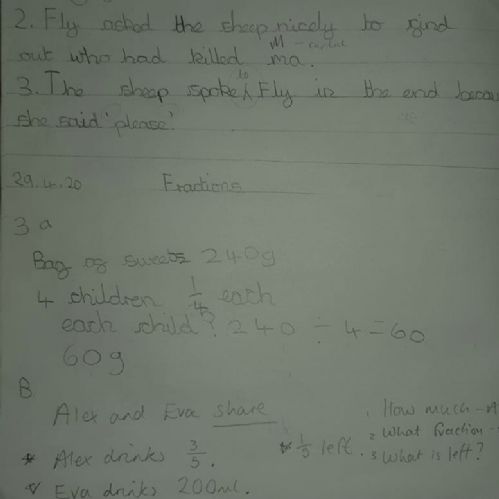 2. Fly asked the sheep nicely to find
out who had killed ma.
M - capital
3. The sheep spoke to Fly in the end
she said 'please'.
29.4.20 Fractions
3 a
Bag of sweets 240g
4 children 1/4 each
each child? 240 ÷ 4 = 60
60g
B
Alex and Eva share
* Alex drinks 3/5.
* 1/5 left.
Eva drinks 200ml.
1 How much -
2 What fraction -
3 What is left?